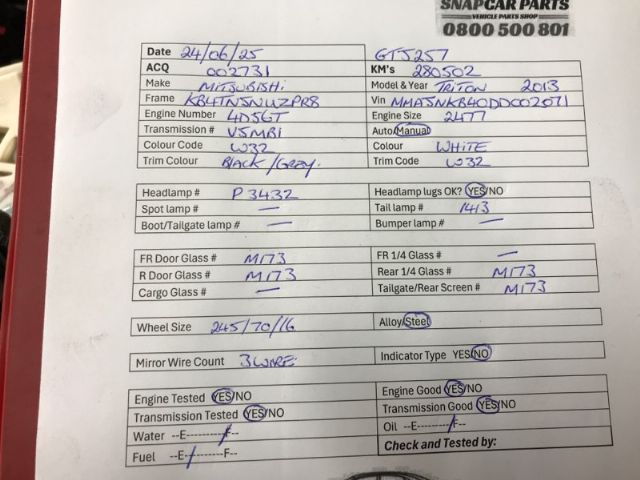 SNAPCAR PARTS
VEHICLE PARTS SHOP
0800 500 801
Date 24/06/25 GTJ257
ACQ 002731 KM's 280502
Make MITSUBISHI Model & Year TRITON 2013
Frame KB4TNJNUZPR8 Vin MMAJNKB40DD002071
Engine Number 4D56T Engine Size 2477
Transmission # V5MB1 Auto/Manual
Colour Code W32 Colour WHITE
Trim Colour BLACK/GREY. Trim Code W32
Headlamp # P3432 Headlamp lugs OK? YES/NO
Spot lamp # — Tail lamp # 1413
Boot/Tailgate lamp # — Bumper lamp # —
FR Door Glass # M173 FR 1/4 Glass # —
R Door Glass # M173 Rear 1/4 Glass # M173
Cargo Glass # — Tailgate/Rear Screen # M173
Wheel Size 245/70/16 Alloy/Steel
Mirror Wire Count 3 WIRE Indicator Type YES/NO
Engine Tested YES/NO Engine Good YES/NO
Transmission Tested YES/NO Transmission Good YES/NO
Water --E----------F-- Oil --E----------F--
Fuel --E----------F-- Check and Tested by: